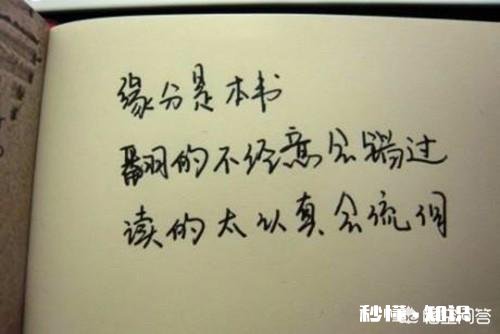 缘分是本书
翻的不经意会错过
读的太认真会流泪
秒懂 知识
悟空问答